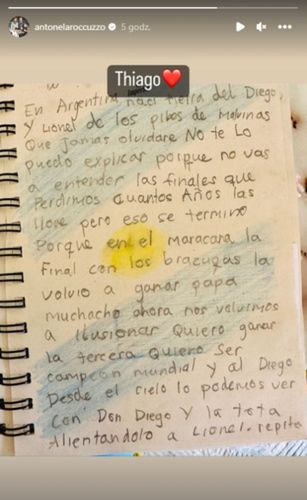 antonelaroccuzzo 5 godz.
Thiago❤️
En Argentina naci tierra del Diego,
Y Lionel de los pibes de Malvinas
Que jamas olvidare No te Lo
puedo explicar porque no vas
a entender las finales que
Perdimos Cuantos Años las
llore pero eso se termino
Porque en el Maracana la
Final con los brazucas la
volvio a ganar papa
muchacho ahora nos volvimos
a ilusionar Quiero ganar
la tercera Quiero ser
campeon mundial y al Diego
Desde el cielo lo podemos ver
Con Don Diego Y la tota
Alentandolo a Lionel. repita